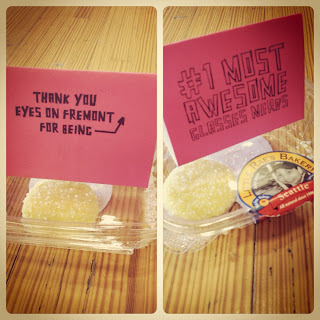 THANK YOU
EYES ON FREMONT
FOR BEING
#1 MOST
AWESOME
GLASSES NERDS
Seattle